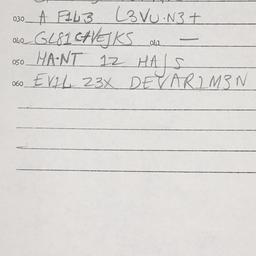 030 A F1L3 L3VU·N3+
040 GL81C+VEJKS 041 —
050 HA·NT 12 HAJS
060 EV1L 23X DEVAR1M3N